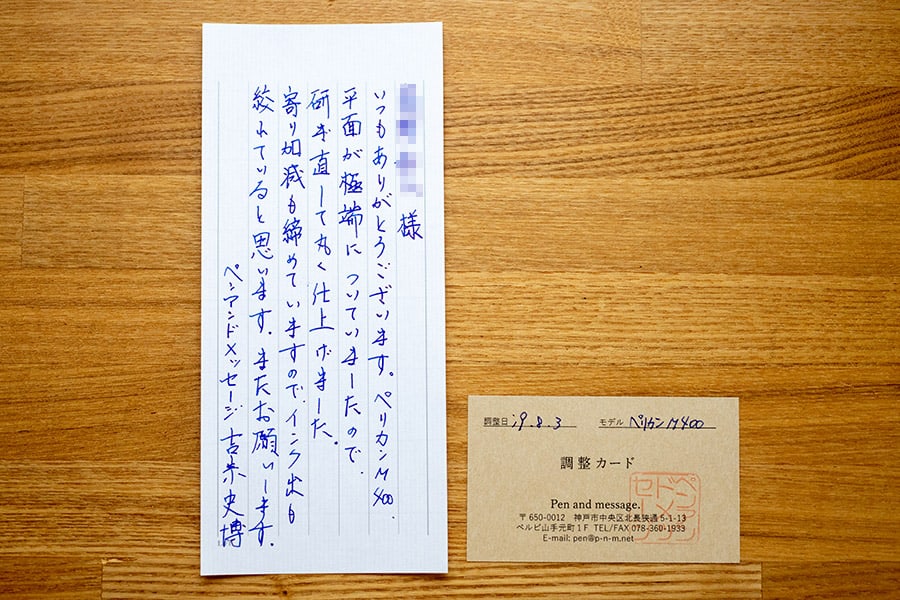 様
いつもありがとうございます。ペリカンM400、
平面が極端についていましたので、
研ぎ直して丸く仕上げました。
寄り加減も締めていますので、インク出も
絞れていると思います。またお願いします。
ペンアンドメッセージ 吉宗史博
調整日 19.8.3 モデル ペリカンM400
調整カード
Pen and message.
〒650-0012 神戸市中央区北長狭通 5-1-13
ベルビ山手元町1F TEL/FAX 078-360-1933
E-mail: pen@p-n-m.net